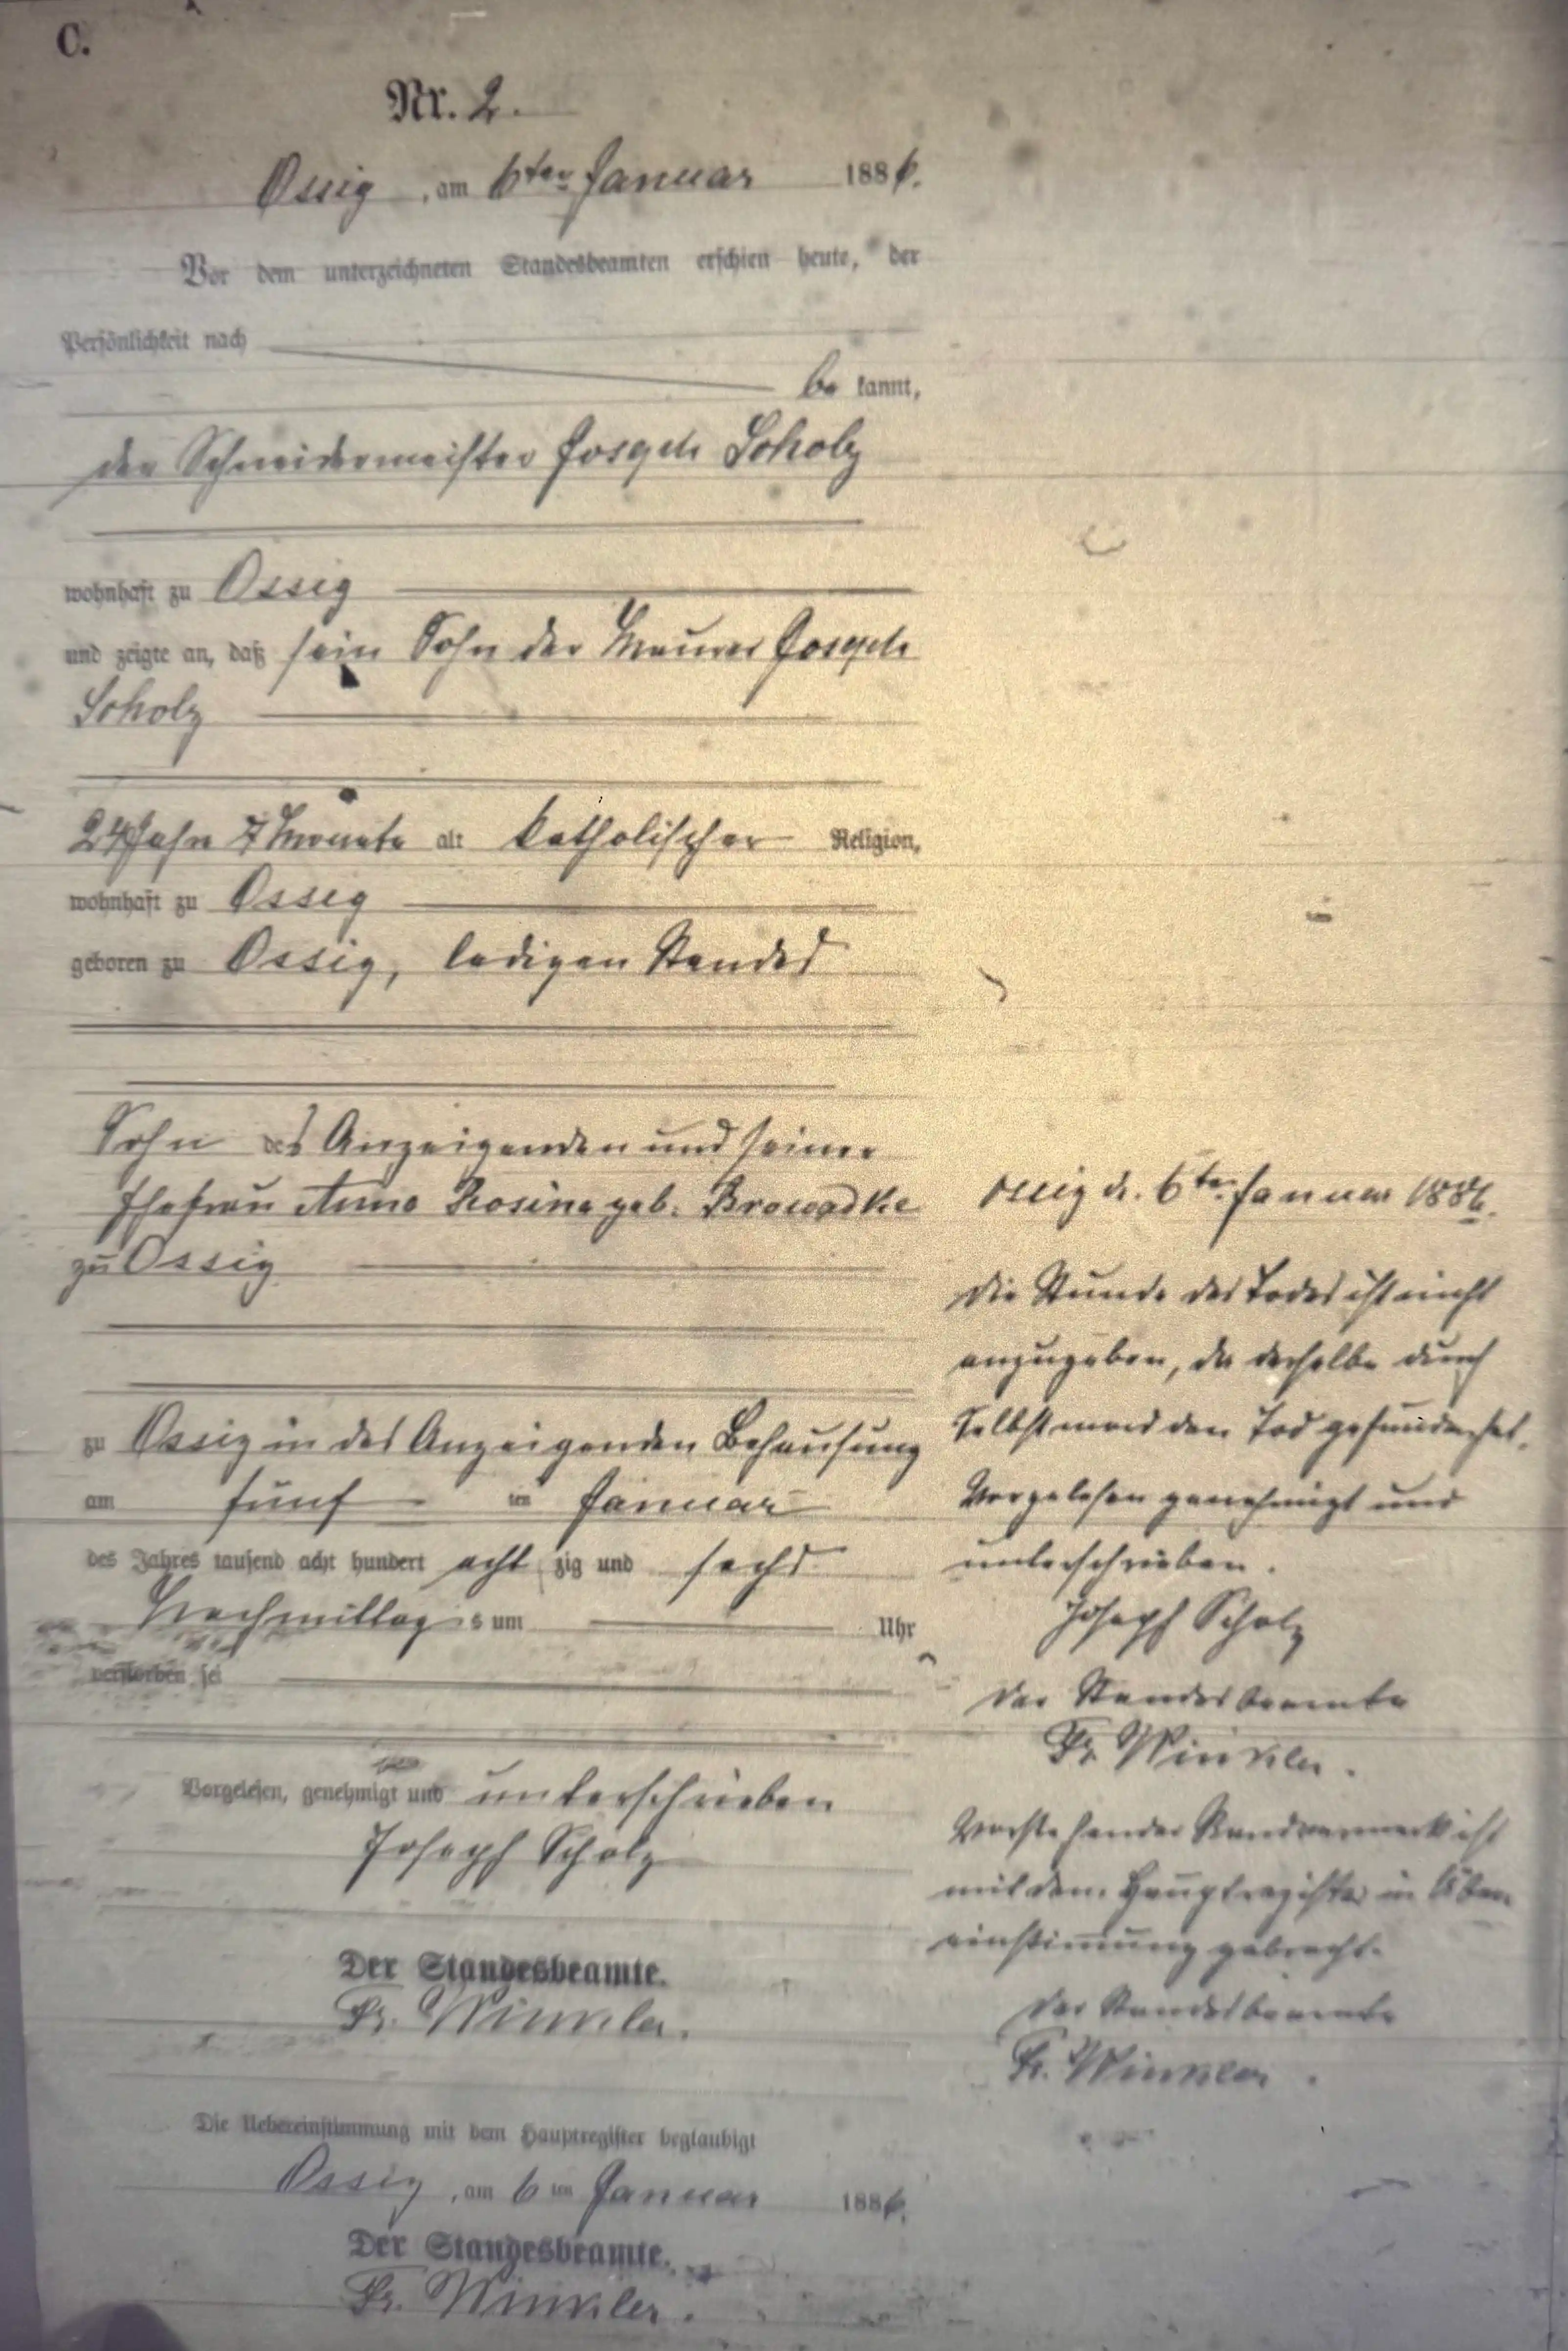 C.
Nr. 2.
Ossig, am 6ten Januar 1886.
Vor dem unterzeichneten Standesbeamten erschien heute, der
Persönlichkeit nach
be kannt,
der Schneidermeister Joseph Scholz
wohnhaft zu Ossig
und zeigte an, daß sein Sohn der Maurer Joseph
Scholz
24 Jahr 7 Monate alt katholischer Religion,
wohnhaft zu Ossig
geboren zu Ossig, ledigen Standes
Sohn des Anzeigenden und seiner
Ehefrau Anna Rosina geb. Browadke
zu Ossig
zu Ossig in des Anzeigenden Behausung
am fünf ten Januar
des Jahres tausend acht hundert acht zig und sechs
Nachmittag s um Uhr
verstorben sei
Vorgelesen, genehmigt und unterschrieben
Joseph Scholz
Der Standesbeamte.
Fr. Winkler.
Die Uebereinstimmung mit dem Hauptregister beglaubigt
Ossig, am 6 ten Januar 1886.
Der Standesbeamte.
Fr. Winkler.
Ossig d. 6ten Januar 1886.
Die Stunde des Todes ist nicht
anzugeben, da derselbe durch
Selbstmord den Tod gefunden hat.
Vorgelesen genehmigt und
unterschrieben.
Joseph Scholz
Der Standesbeamte
Fr. Winkler.
Vorstehender Randvermerk ist
mit dem Hauptregister in Über
einstimmung gebracht.
Der Standesbeamte
Fr. Winkler.